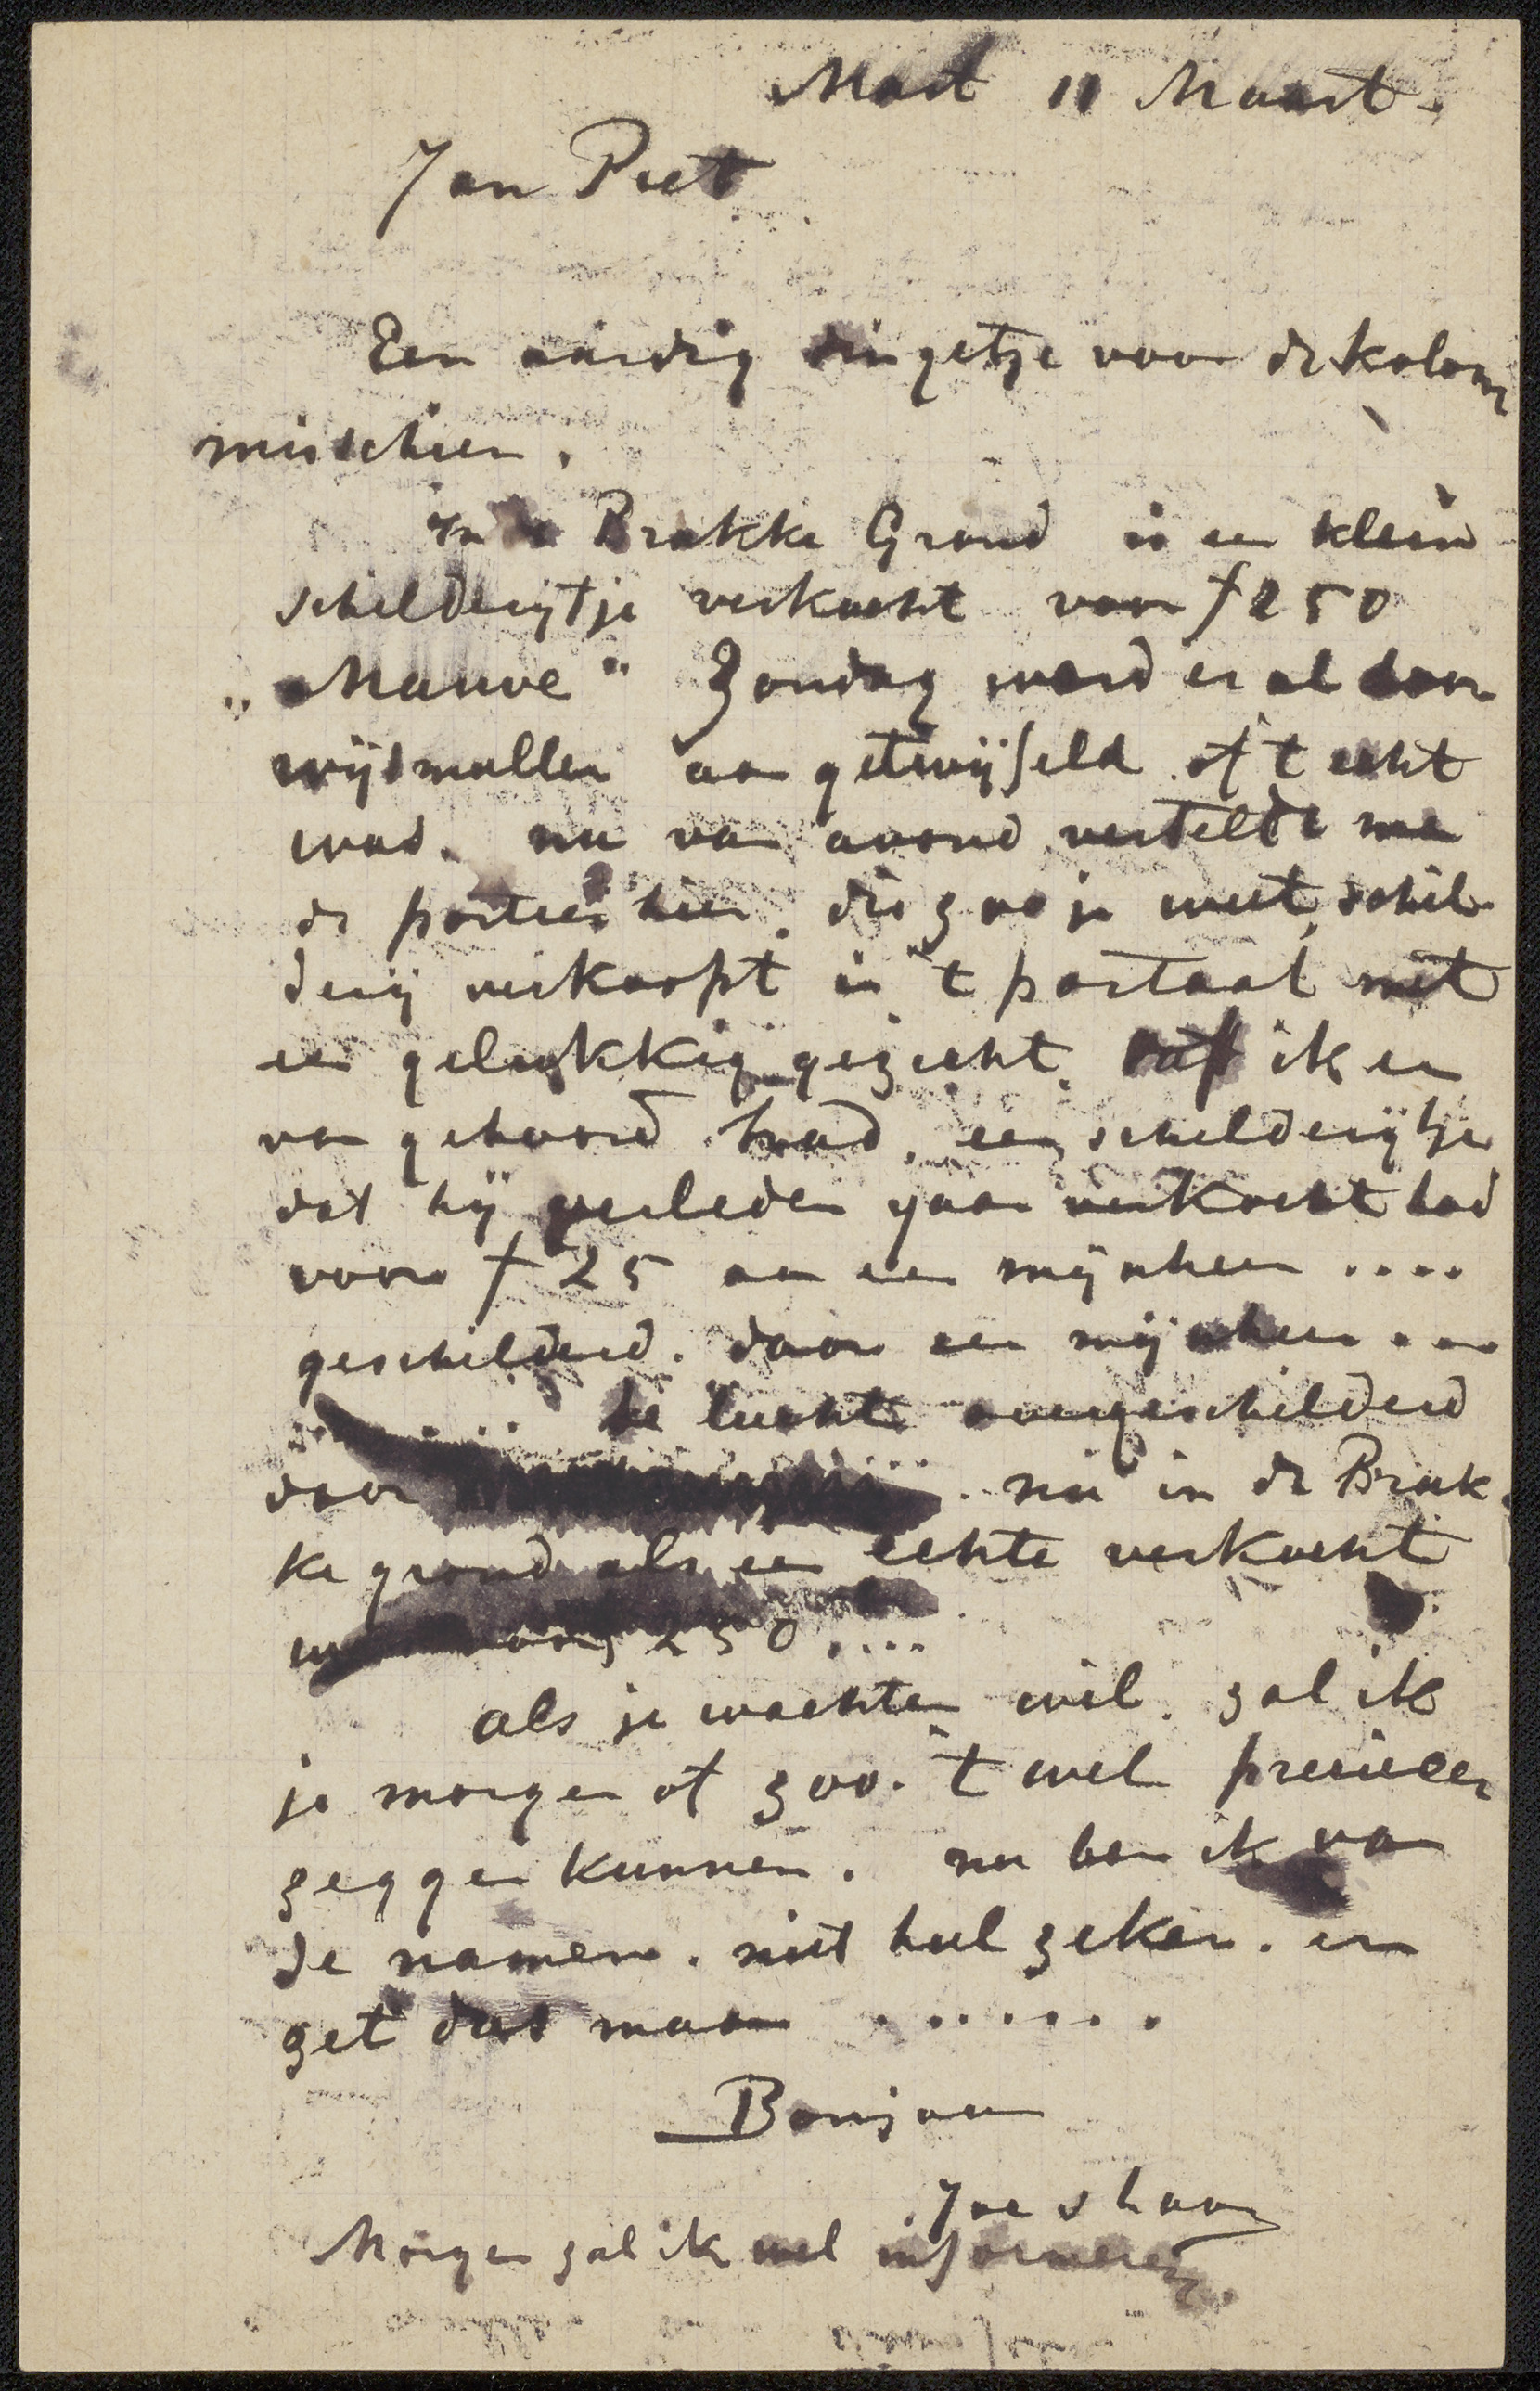 Mart 11 Maart.
Jan Piet
Een aardig dingetje voor de kolom
misschien.
In de Brakke Grond is een klein
schilderijtje verkocht voor f 250
„Mauve" Zondag werd er al door
wijsmuller aan getwijfeld of t echt
was. nu van avond vertelde me
de portier hier. die zoo je weet, schil
derij verkoopt in 't portaal met
een gelukkig gezicht. dat ik er
van gehoord had. een schilderijtje
dat hij verleden jaar verkocht had
voor f 25 aan een mijnheer ....
geschilderd. door een mijnheer ...
...... de lucht overgeschilderd
door ... nu in de Brak
ke grond als een echte verkocht
voor 250 ....
als je wachten wil. zal ik
je morgen of zoo. 't wel precieser
zeggen kunnen. nu ben ik van
de namen. niet heel zeker. en
zet dus maar .......
Bonjour
Morgen zal ik wel informeren.